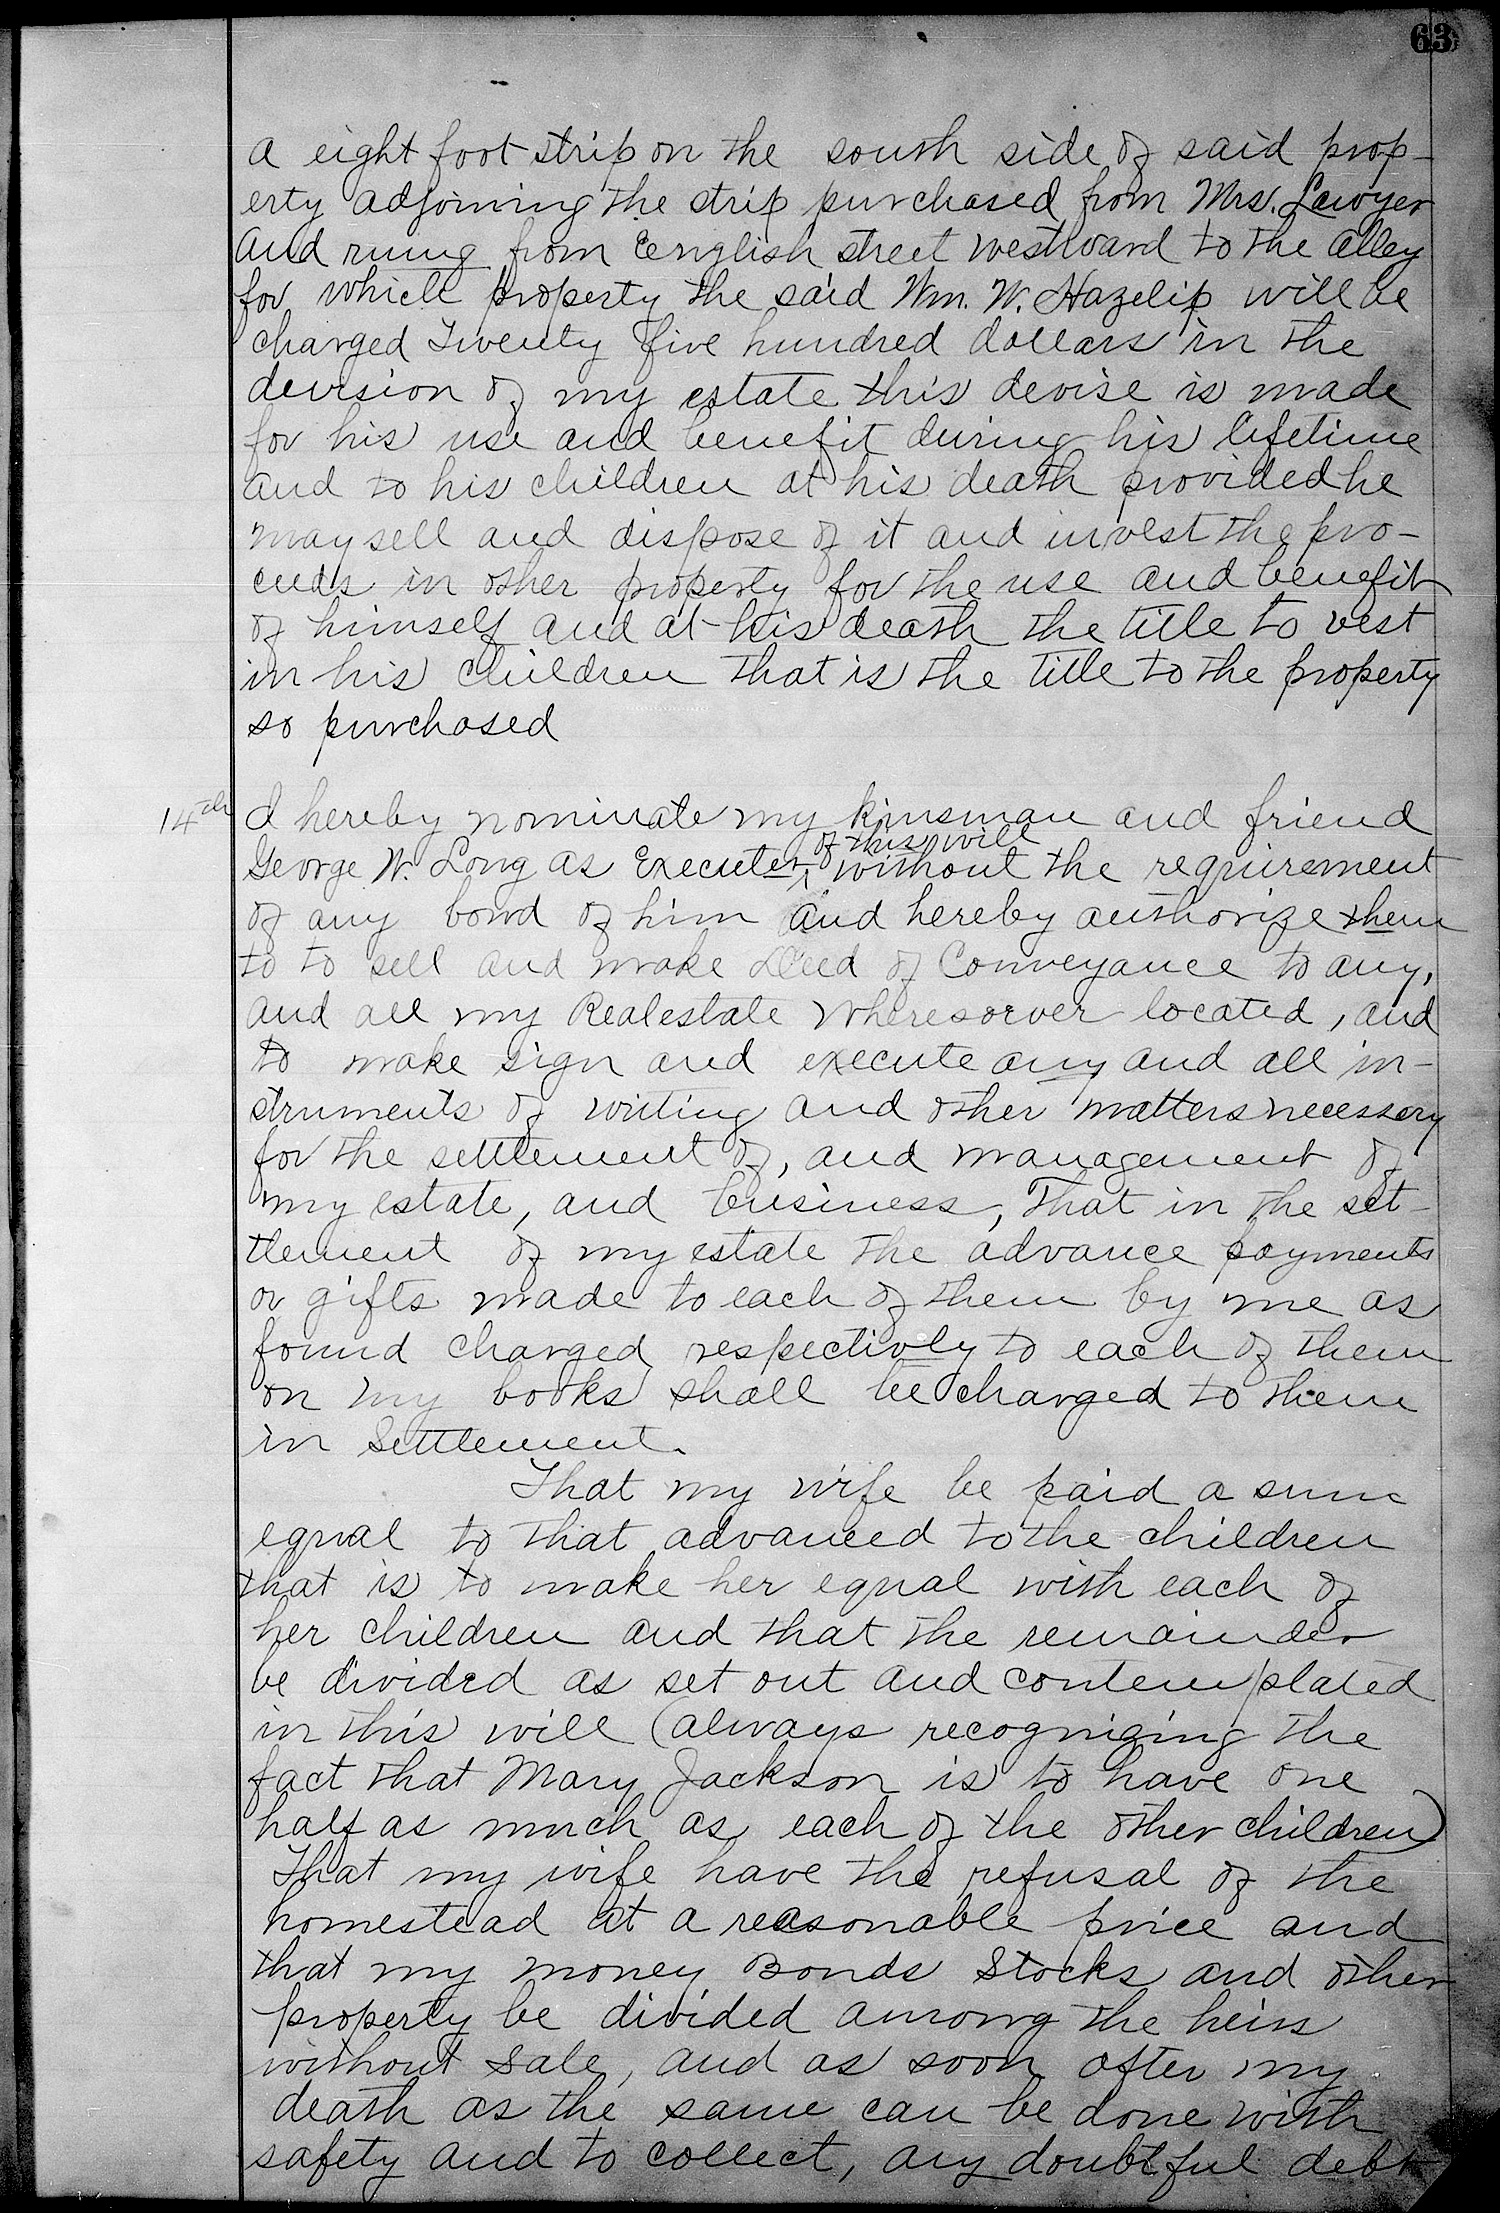 63
a eight foot strip on the south side of said prop-
erty adjoining the strip purchased from Mrs. Lawyer
and runing from English street westward to the alley
for which property the said Wm. W. Hazelip will be
charged Twenty five hundred dollars in the
devision of my estate this devise is made
for his use and benefit during his lifetime
and to his children at his death provided he
may sell and dispose of it and invest the pro-
ceeds in other property for the use and benefit
of himself and at his death the title to vest
in his children that is the title to the property
so purchased
14th I hereby nominate my kinsman and friend
George W. Long as Executer of this will without the requirement
of any bond of him and hereby authorize them
to to sell and make Deed of Conveyance to any,
and all my Realestate Wheresoever located, and
to make sign and execute any and all in-
struments of writing and other matters necessery
for the settlement of, and management of
my estate, and business, That in the set-
tlement of my estate the advance payments
or gifts made to each of them by me as
found charged respectivly to each of them
on my books shall be charged to them
in Settlement.
That my wife be paid a sum
equal to that advanced to the children
that is to make her equal with each of
her children and that the remainder
be divided as set out and contemplated
in this will (always recognizing the
fact that Mary Jackson is to have one
half as much as each of the other children)
That my wife have the refusal of the
homestead at a reasonable price and
that my money Bonds Stocks and other
property be divided among the heirs
without sale, and as soon after my
death as the same can be done with
safety and to collect, any doubtful debt